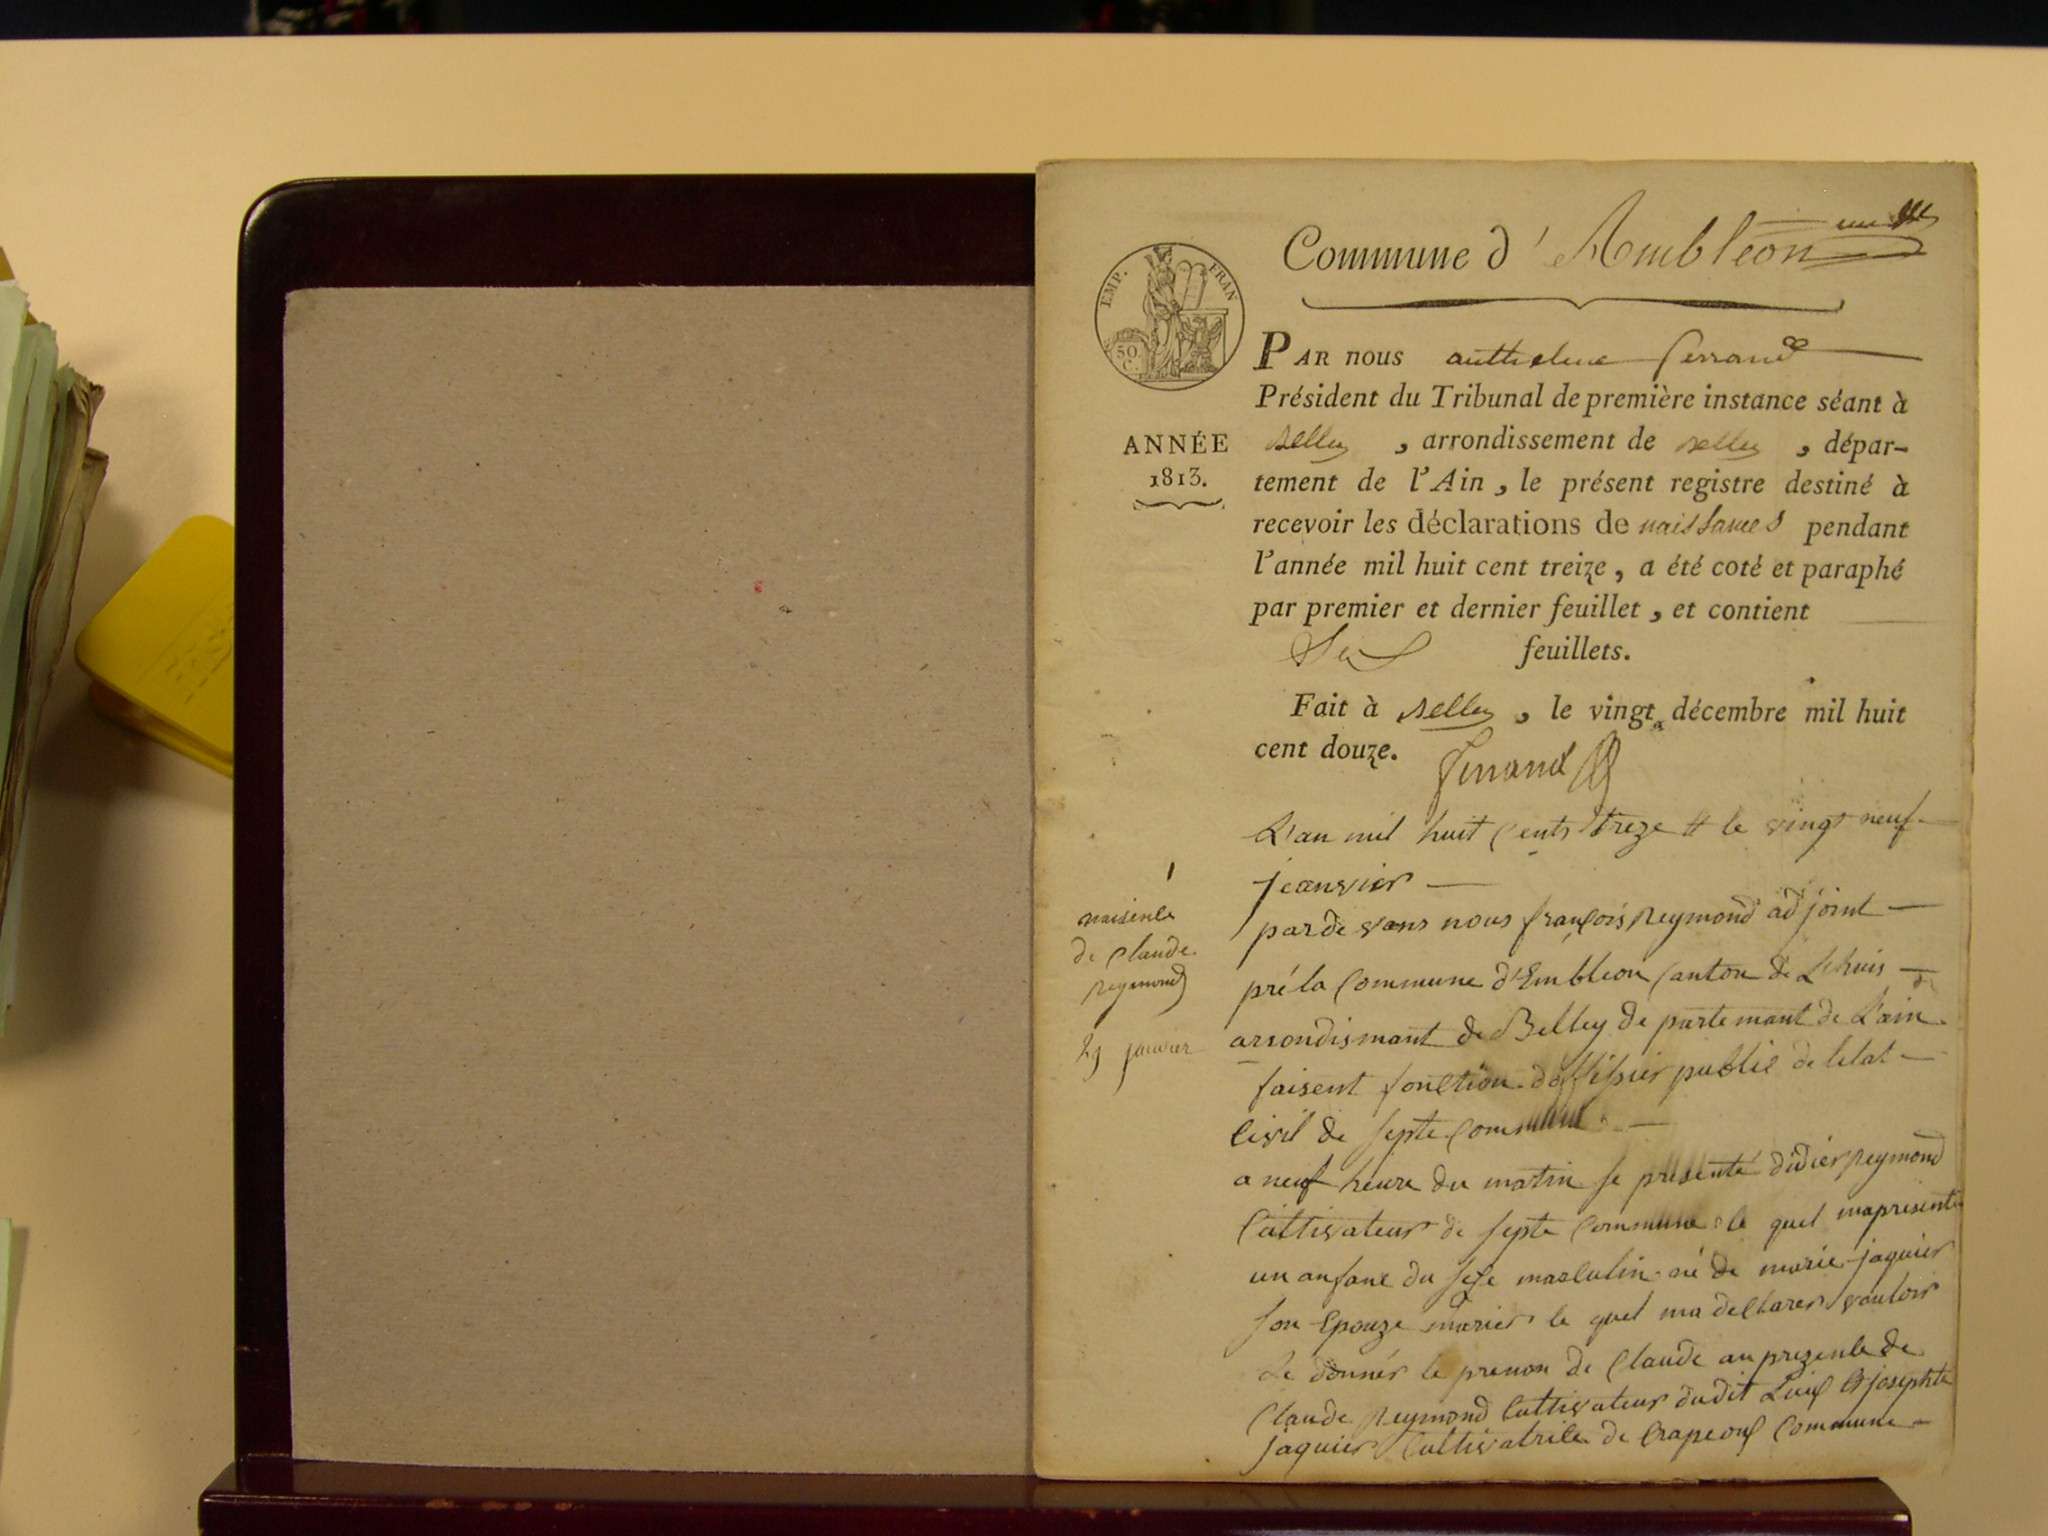 Commune d'Ambléon
EMP. FRAN
50
C.
PAR nous anthelme ferrand
Président du Tribunal de première instance séant à
ANNÉE
1813.
Belley , arrondissement de Belley , dépar-
tement de l'Ain , le présent registre destiné à
recevoir les déclarations de naissances pendant
l'année mil huit cent treize , a été coté et paraphé
par premier et dernier feuillet , et contient
Six feuillets.
Fait à Belley , le vingt décembre mil huit
cent douze. ferrand
L'an mil huit cents treze & le vingt neuf
jeanvier
1
naisence
de Claude
Reymond
29 janvier
parde vans nous françois Reymond adjoint
pré la Commune d'Embleon Canton de Lhuis
arrondismant de Belley de partemant de L'ain
faisent fonction doffisier publie de letat
Civil de septe Commune
a neuf heure du matin se présenté didier Reymond
Cultivateur de septe Commune le quel maprésenté
un anfant du sexe masculin né de marie jaquier
son Epouze marier le quel ma declarer vouloir
Le donnér le prenon de Claude an prezence de
Claude Reymond Cultivateur dudit Luis & josephte
jaquier Cultivatrice de Crapeou Commune